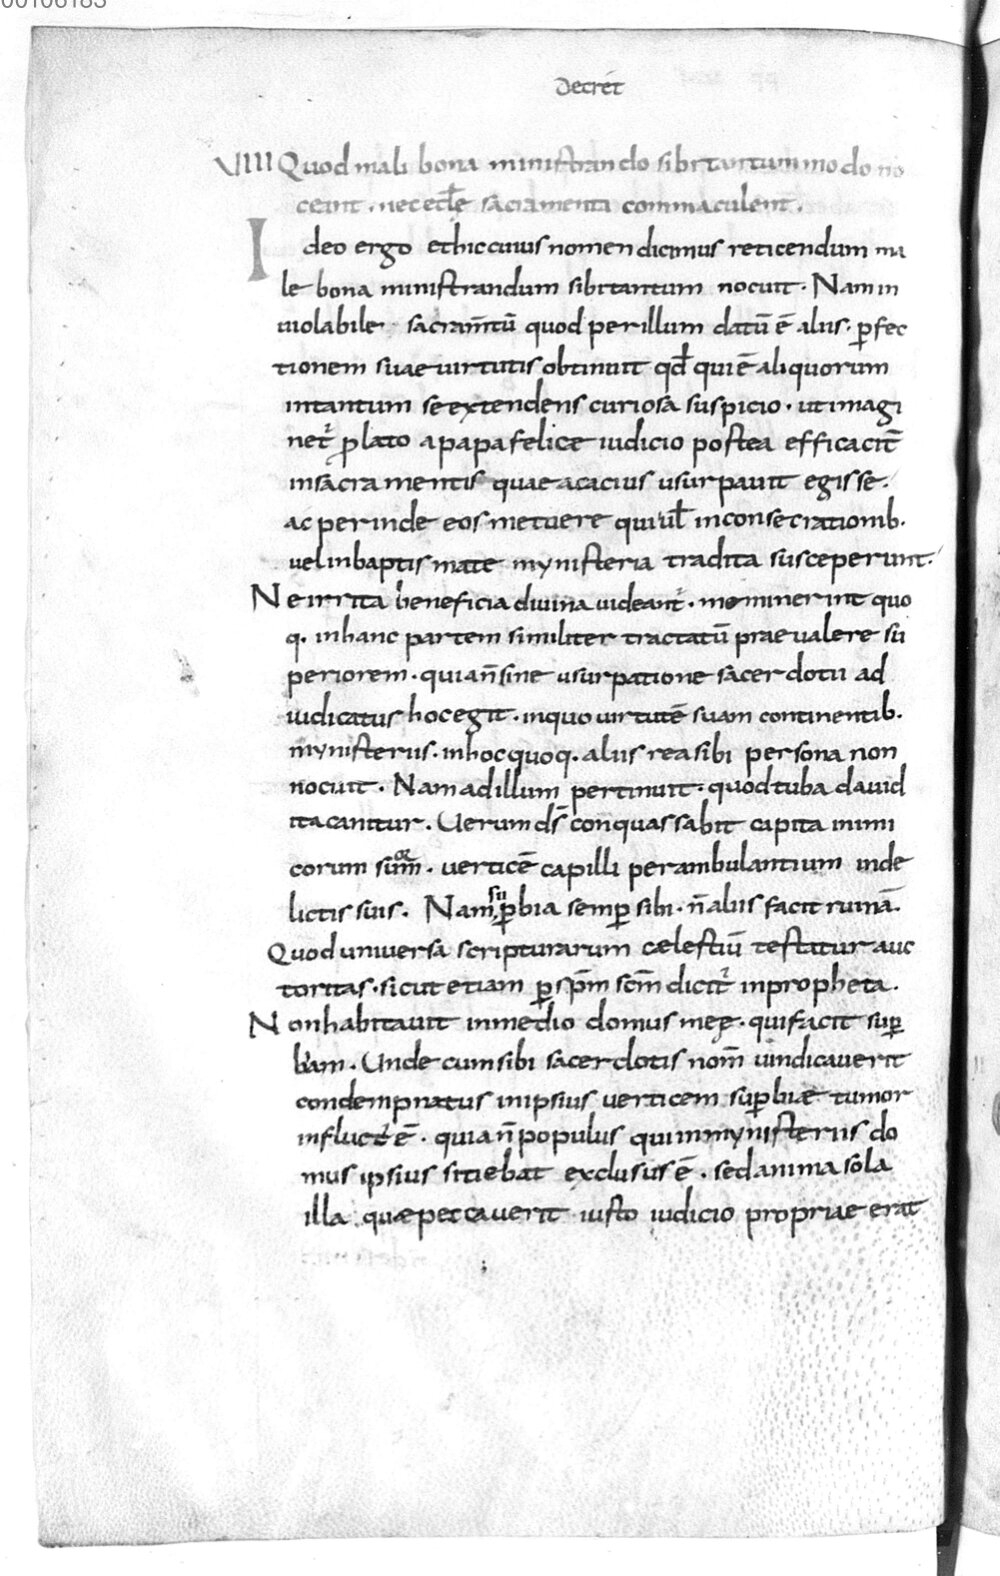 00106183
Decret̄
VIIII Quod mali bona ministrando sibi tantummodo no
ceant · nec eccl̄e sacramenta commaculent̄ .
Ideo ergo et hic cuius nomen dicimus reticendum ma
le bona ministrandum sibi tantum nocuit · Nam in
uiolabile sacram̄tū quod per illum datū ē aliis · ꝑfec
tionem suae uirtutis obtinuit qd̄ qui ē aliquorum
intantum se extendens curiosa suspicio · ut imagi
net̄ ꝓlato a papa felice iudicio postea efficacit̄
in sacramentis quae acacius usurpauit egisse ·
ac perinde eos metuere qui ul̄ in consecrationib·
uel in baptismate mynisteria tradita susceperunt ·
Ne irrita beneficia diuina uideant̄ · meminerint quo
q· in hanc partem similiter tractatū praeualere su
periorem · quia n̄ sine usurpatione sacerdotii ad
iudicatus hoc egit · in quo uirtutē suam continentib·
mynisteriis · in hoc quoq· aliis rea sibi persona non
nocuit · Nam ad illum pertinuit · quod tuba dauid
ita canitur . Uerum dš conquassabit capita inimi
corum suoꝝ · uerticē capilli perambulantium in de
lictis suis . Nam suꝑbia semꝑ sibi · n̄ aliis facit ruinā .
Quod uniuersa scripturarum cælestiū testatur auc
toritas · sicut etiam ꝑ sp̄m sc̄m dicit̄ in propheta .
Non habitauit in medio domus meę · qui facit suꝑ
biam · Unde cum sibi sacerdotis nom̄ uindicauerit
condempnatus in ipsius uerticem suꝑbiæ tumor
inflictꝰ ē · quia n̄ populus qui in mynisteriis do
mus ipsius sitiebat exclusus ē · sed anima sola
illa quæ peccauerit iusto iudicio propriae erat